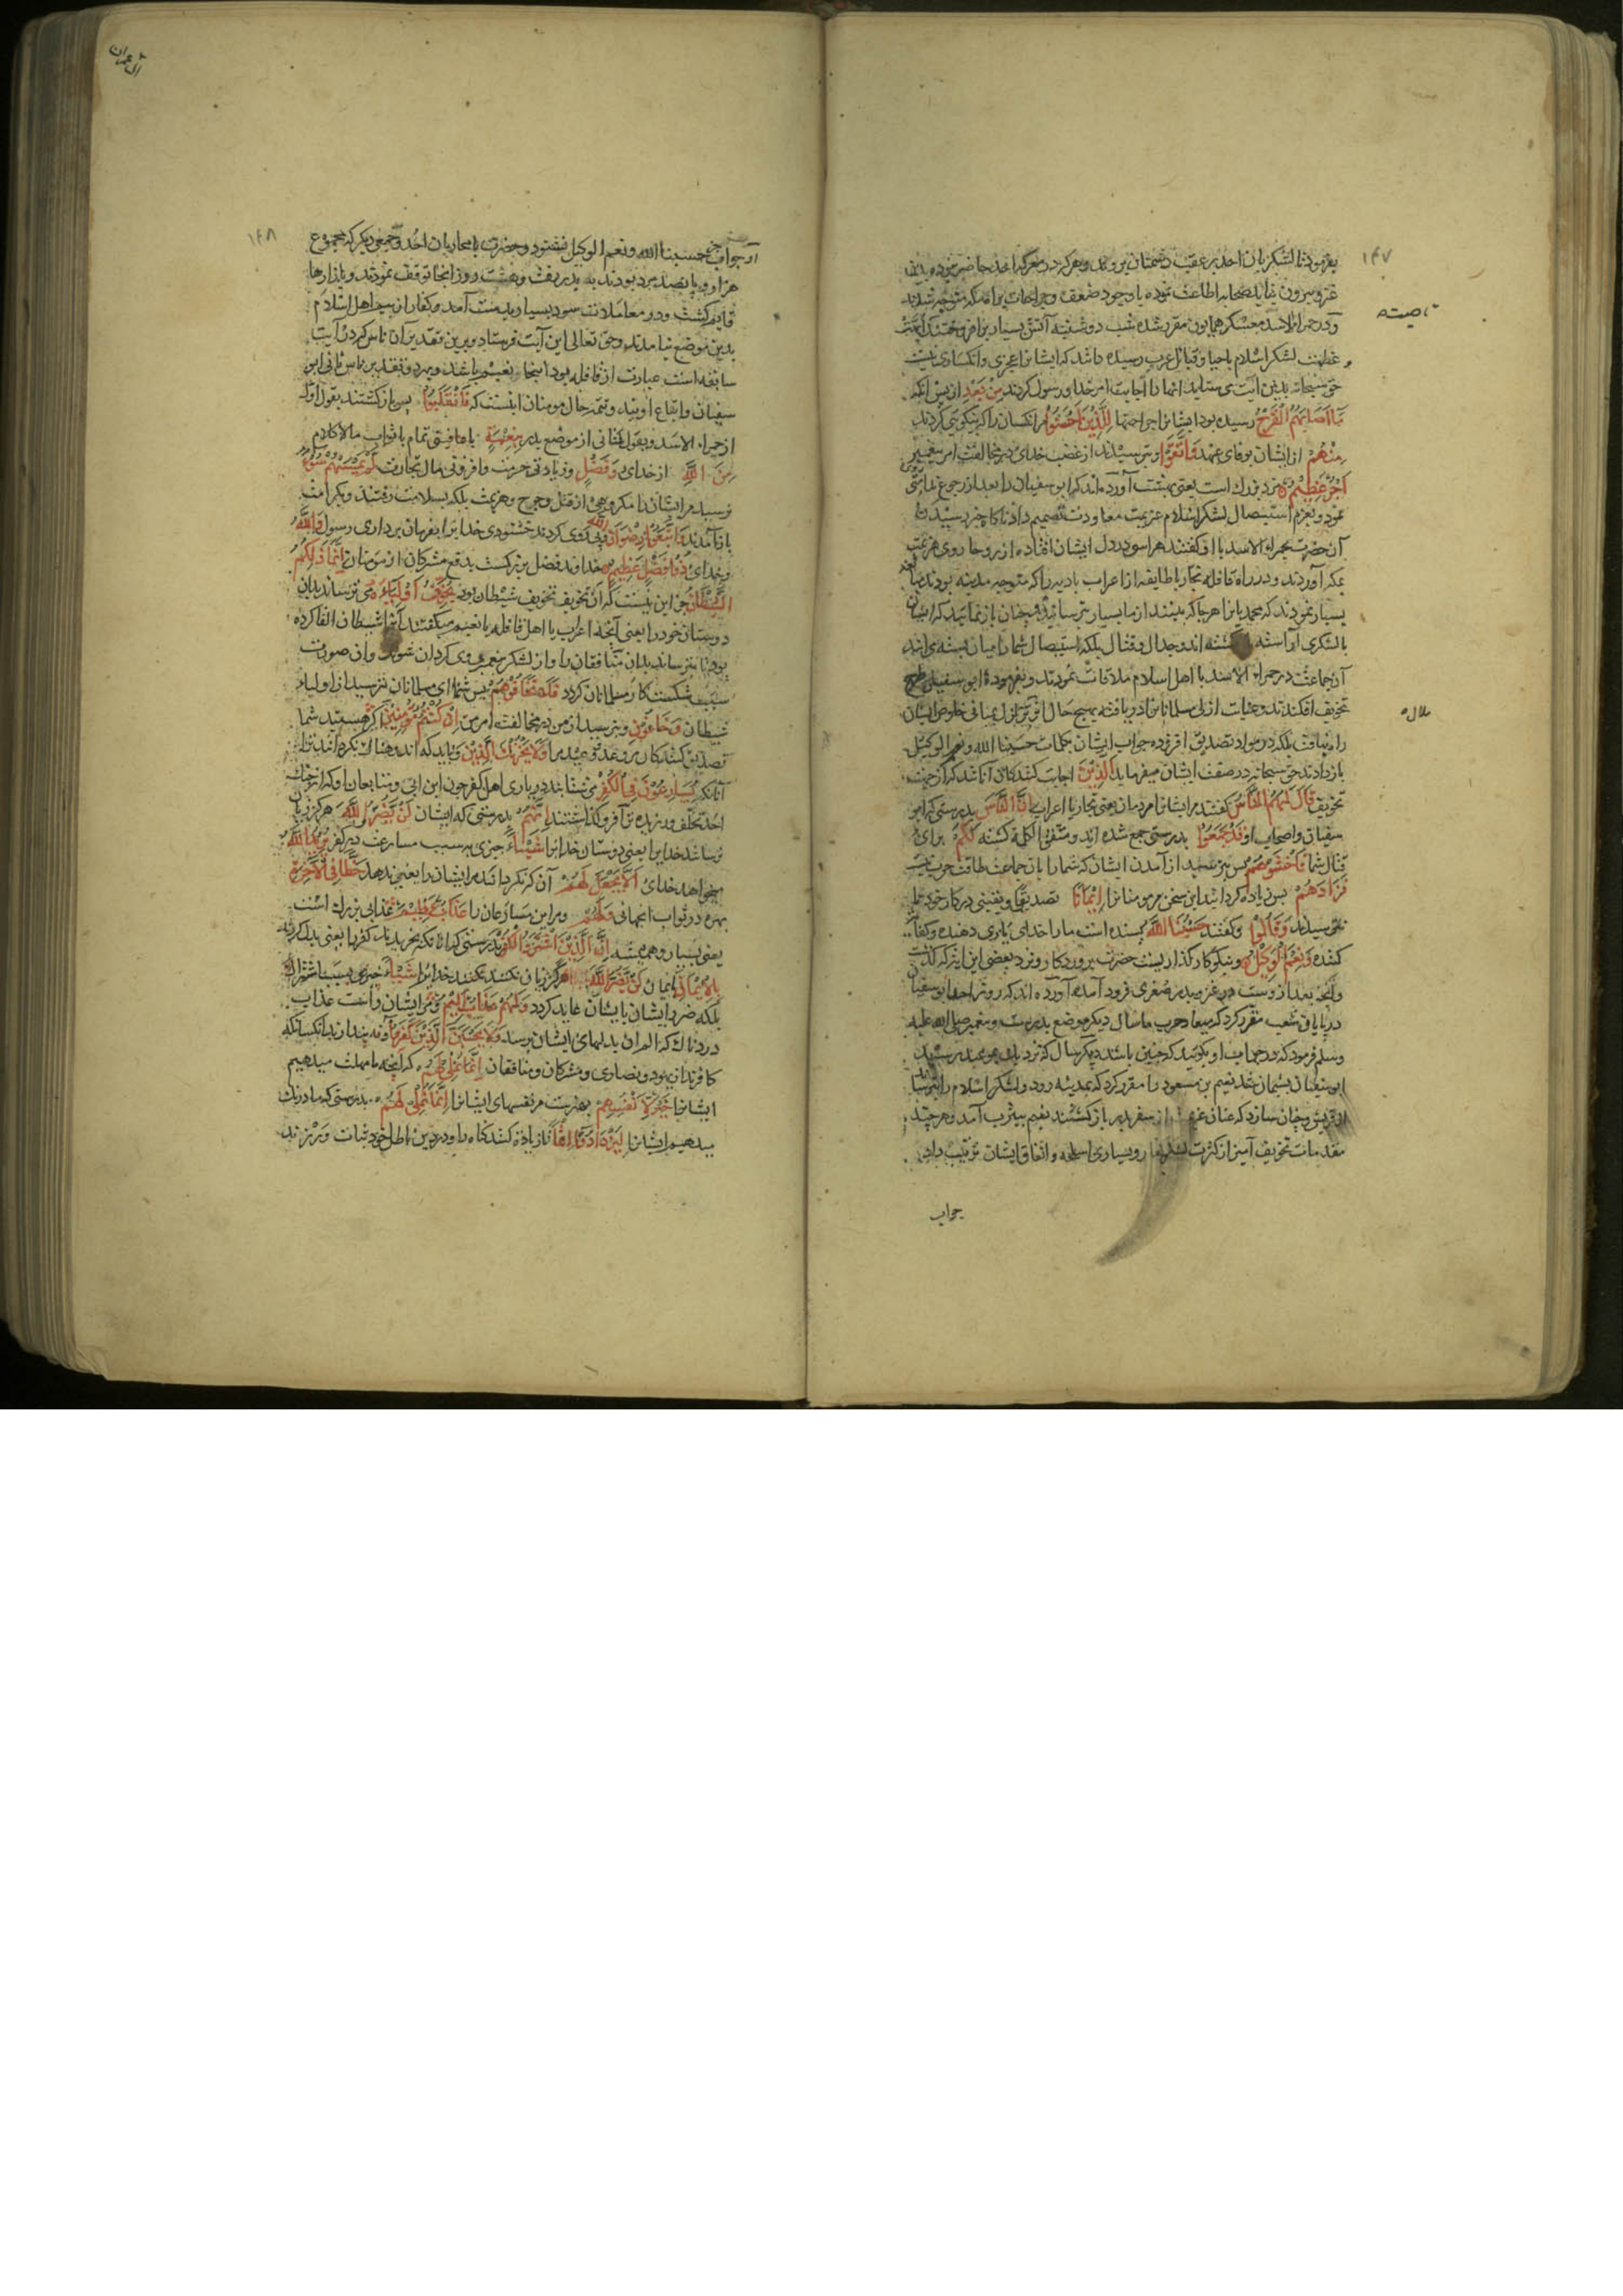 ۱۴۷
بفرمود تا لشکریان احد بر عقب دشمنان بروند و هر که در معرکه احد حاضر نبوده بدین
غزو بیرون نیاید صحابه اطاعت نموده با وجود ضعف و جراحات برآمدند متوجه شدند
و در حمراء الاسد معسکر همایون مقرر شده شب دوشنبه آتش بسیار برافروختند
و عظمت لشکر اسلام باحیا و قبائل عرب رسیده داشد که ایشانرا عجزی و انکساری نیست
حق سبحانه بدین آیت می ستاید آنها را اجابت امر خدا و رسول کردند مِنْ بَعْدِ از پس آنکه
مَا اَصَابَهُمُ الْقَرْحُ رسیده بود ایشانرا جراحتها لِلَّذِينَ اَحْسَنُوا مر آنکسان را که نیکویی کردند
مِنْهُمْ از ایشان بوفای عهد وَاتَّقَوْا و بترسیدند از غضب خدای در مخالفت امر پیغمبر
اَجْرٌ عَظِيمٌ مزد بزرگ است یعنی بهشت آورده اند که ابوسفیان را بعد از رجوع ندامتی
نمود و بعزم استیصال لشکر اسلام عزیمت معاودت تصمیم داد ناگاه خبر رسیدن
آن حضرت بحمراء الاسد با او گفتند هراسی در دل ایشان افتاده از روحا روی هزیمت
بمکه آوردند و در راه قافله تجار یا طایفه از اعراب بادیه را که متوجه مدینه بودند
بسیار نمودند که محمد یانرا هر جا که بینند از ما بسیار بترسانید و چنان باز نمائید که ایشان
بالشکری آراسته گشته اند و جدال و قتال بلکه استیصال شما را میان بسته می آیند
آن جماعت در حمراء الاسد با اهل اسلام ملاقات نمودند و بفرمودۀ ابوسفیان طرح
تخویف افکندند و عنایت ازلی مسلمانانرا دریافته بهیچ حال اثر تزلزل بمبانی خلوص ایشان
راه نیافت بلکه در مواد تصدیق افزوده جواب ایشان بکلمات حسبنا الله و نعم الوکیل
باز دادند حق سبحانه در صفت ایشان میفرماید الَّذِينَ اجابت کنندگان آنانند که از جهت
تخویف قَالَ لَهُمُ النَّاسُ گفتند مر ایشانرا مردمان یعنی تجار یا اعراب اِنَّ النَّاسَ بدرستی که ابو
سفیان و اصحاب او قَدْ جَمَعُوا بدرستی جمع شده اند و متفق الکلمة گشته لَكُمْ برای
قتال شما فَاخْشَوْهُمْ پس بترسید از آمدن ایشان که شما را با آن جماعت طاقت حرب نیست
فَزَادَهُمْ پس زیاده گردانید این سخن مر مومنانرا اِيْمَانًا تصدیق و یقینی در کار خود
نترسیدند وَقَالُوا و گفتند حَسْبُنَا اللَّهُ بسنده است ما را خدای یاری دهنده و کفایت
کننده وَنِعْمَ الْوَكِيلُ و نیکو کارگذاریست حضرت پروردگار و نزد بعضی این آیتی که گذشت
و آنچه بعد از وست در غزوه بدر صغری فرود آمده آورده اند که روز احد ابوسفیان
در پایان شعب مقرر کرد که میعاد حرب ما سال دیگر موضع بدرست و پیغمبر صلی الله علیه
وسلم فرمود که در جواب او بگوئید که چنین باشد دیگر سال که نزدیک بموعد رسید
ابوسفیان پشیمان شد نعیم بن مسعود را مقرر کرد که بمدینه رود و لشکر اسلام را بترساند
از قریش و چنان سازد که عنان عزیمت از سفر بدر باز کشند نعیم بیثرب آمد و هر چند
مقدمات تخویف آمیز از کثرت لشکر کفار و بسیاری اسلحه و اتفاق ایشان ترتیب داد
جواب
آل عمران
۱۴۸
جواب جز حسبنا الله و نعم الوکیل نشنود و حضرت با محاربان احد و جمعی دیگر که مجموع
هزار و پانصد مرد بودند به بدر رفت و هشت روز آنجا توقف نمودند و بازارها
قایم گشت و در معاملات سود بسیار بدست آمد و کفار از بیم اهل اسلام
بدین موضع نیامدند و حق تعالی این آیت فرستاد و برین تقدیر آن ناس که در آیت
سابقه است عبارت از قافله بود اینجا نعیم باشد و بهر دو تقدیر ناس ثانی ابو
سفیان و اتباع اویند و تتمه حال مومنان اینست که فَانْقَلَبُوا پس باز گشتند بقول اول
از حمراء الاسد و بقول ثانی از موضع بدر بِنِعْمَةٍ با عافیتی تمام یا ثواب مالاکلام
مِنَ اللَّهِ از خدای وَفَضْلٍ و زیادتی حرمت و افزونی مال تجارت لَمْ يَمْسَسْهُمْ سُوءٌ
نرسید مر ایشان را مکروهی از قتل و جرح و هزیمت بلکه بسلامت رفتند و بکرامت
باز آمدند وَاتَّبَعُوا رِضْوَانَ اللَّهِ و پی روی کردند خشنودی خدایرا بفرمان برداری رسول وَاللَّهُ
و خدای ذُو فَضْلٍ عَظِيمٍ خداوند فضل بزرگست بدفع مشرکان از مومنان اِنَّمَا ذَلِكُمُ
الشَّيْطَانُ جز این نیست که آن تخویف تخویف شیطان بود يُخَوِّفُ اَوْلِيَاءَهُ می ترساند بدان
دوستان خود را یعنی آنچه اعراب یا اهل قافله یا نعیم میگفتند آنرا شیطان القا کرده
بود تا بترساند بدان منافقان را و از لشکر پیغمبر روی گردان شوند و آن صورت
سبب شکست کار مسلمانان گردد فَلَا تَخَافُوهُمْ پس شما ای مسلمانان نترسید از اولیاء
شیطان وَخَافُونِ و بترسید از من در مخالفت امر من اِنْ كُنْتُمْ مُؤْمِنِينَ اگر هستید شما
تصدیق کنندگان مر وعد و وعید مرا وَلَا يَحْزُنْكَ الَّذِينَ و نباید که اندوهناک نکردانند ترا
آنانکه يُسَارِعُونَ فِي الْكُفْرِ می شتابند در یاری اهل کفر چون ابن ابی و متابعان او که از جنگ
احد تخلف ورزیدند اِنَّهُمْ بدرستی که ایشان لَنْ يَضُرُّوا اللَّهَ هرگز زیان
نرسانند خدایرا یعنی دوستان خدایرا شَيْئًا چیزی بسبب مسارعت در کفر يُرِيدُ اللَّهُ
میخواهد خدای اَلَّا يَجْعَلَ لَهُمْ آن که نگرداند مر ایشان را یعنی ندهد حَظًّا فِي الْآخِرَةِ
بهره در ثواب آنجهانی وَلَهُمْ و مر این مسارعان را عَذَابٌ عَظِيمٌ عذابی بزرگ است
یعنی بسیار و همیشه اِنَّ الَّذِينَ اشْتَرَوُا الْكُفْرَ بدرستی که آنانکه بخریدند کفر را یعنی بدل کردند
بِالْاِيمَانِ بایمان لَنْ يَضُرُّوا اللَّهَ هرگز زیان نکنند خدایرا شَيْئًا چیزی بسبب اشتراک
بلکه ضرر ایشان بایشان عاید گردد وَلَهُمْ عَذَابٌ اَلِيمٌ و مر ایشان راست عذاب
دردناک که الم آن بدلهای ایشان برسد وَلَا يَحْسَبَنَّ الَّذِينَ كَفَرُوا و نه پندارند آنکسانکه
کافرند از یهود و نصاری و مشرکان و منافقان اَنَّمَا نُمْلِي لَهُمْ که آنچه ما مهلت میدهیم
ایشانرا خَيْرٌ لِاَنْفُسِهِمْ بهترست مر نفسهای ایشانرا اِنَّمَا نُمْلِي لَهُمْ بدرستی که ما درنگ
میدهیم ایشانرا لِيَزْدَادُوا اِثْمًا تا زیاده کنند گناه را و در دین باطل خود ثبات ورزند